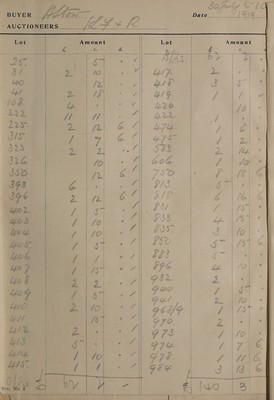 BUYER
AUCTIONEERS K F & R
Date
Lot Amount Lot Amount
£ s. d. £ s. d.
25 5 -
31 2 10 - 417 2 - -
40 12 - 418 3 5 -
41 2 18 - 419 1 1 -
108 4 - - 420 10 -
222 11 11 - 422 1 - -
225 2 12 6 474 1 6
315 1 7 6 475 1 2
323 2 2 - 523 2 14
326 10 - 606 1 10
350 12 - 750 8 18 6
393 6 - - 813 5 -
396 2 12 6 818 6 16 6
402 1 5 - 831
403 1 10 - 833 4 15
404 1 10 - 835 3 10
405 1 5 - 850 5 15 6
406 1 1 - 883 5 -
407 1 15 - 896 4 10
408 2 2 - 932 2
409 1 5 - 940 1 5
410 2 10 - 941 2 10
411 15 - 1 15
412 2 - - 970 2
413 5 - - 973 1 10
414 1 10 - 974 1 7 6
415 1 1 - 978 1 11 6
£ 62 2 - 984 3 13 6
£ 140 3